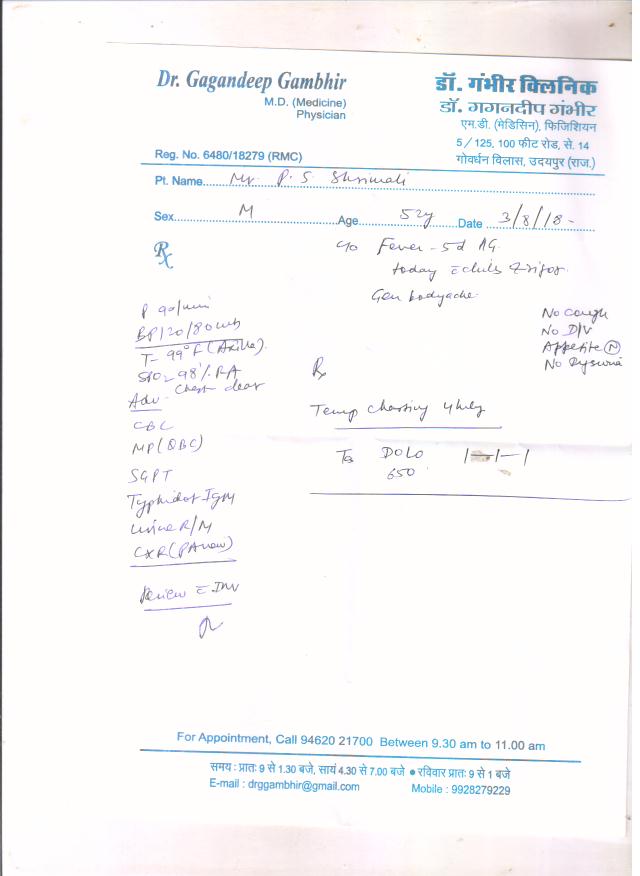 Dr. Gagandeep Gambhir
M.D. (Medicine)
Physician
Reg. No. 6480/18279 (RMC)
डॉ. गंभीर क्लिनिक
डॉ. गगनदीप गंभीर
एम.डी. (मेडिसिन), फिजिशियन
5/125, 100 फीट रोड, से. 14
गोवर्धन विलास, उदयपुर (राज.)
Pt. Name Mr. P. S. Shrimali
Sex M Age 52y Date 3/8/18
Rx
c/o Fever - 5d
today c chills
Gen bodyache
No cough
No D/V
Appetite (N)
No Dysuria
P 90/min
BP 120/80
T- 99°F (Axilla).
SPO2 98% RA
Chest clear
Adv
CBC
MP (QBC)
SGPT
Typhidot IgM
Urine R/M
CXR (PA view)
Review c Inv
Rx
Temp charting 4hrly
Tab DOLO 1-1-1
650
For Appointment, Call 94620 21700 Between 9.30 am to 11.00 am
समय : प्रातः 9 से 1.30 बजे, सायं 4.30 से 7.00 बजे ● रविवार प्रातः 9 से 1 बजे
E-mail : drggambhir@gmail.com Mobile : 9928279229